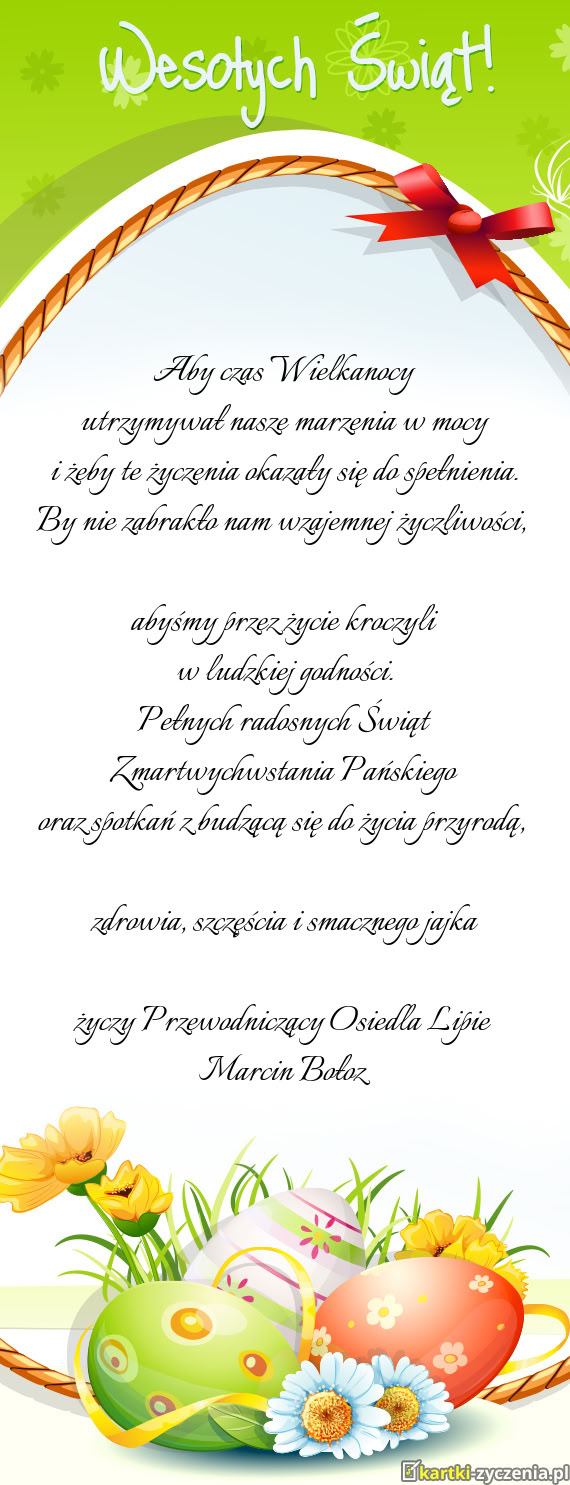 Wesołych Świąt!
Aby czas Wielkanocy
utrzymywał nasze marzenia w mocy
i żeby te życzenia okazały się do spełnienia.
By nie zabrakło nam wzajemnej życzliwości,
abyśmy przez życie kroczyli
w ludzkiej godności.
Pełnych radosnych Świąt
Zmartwychwstania Pańskiego
oraz spotkań z budzącą się do życia przyrodą,
zdrowia, szczęścia i smacznego jajka
życzy Przewodniczący Osiedla Lipie
Marcin Bołoz
kartki-zyczenia.pl